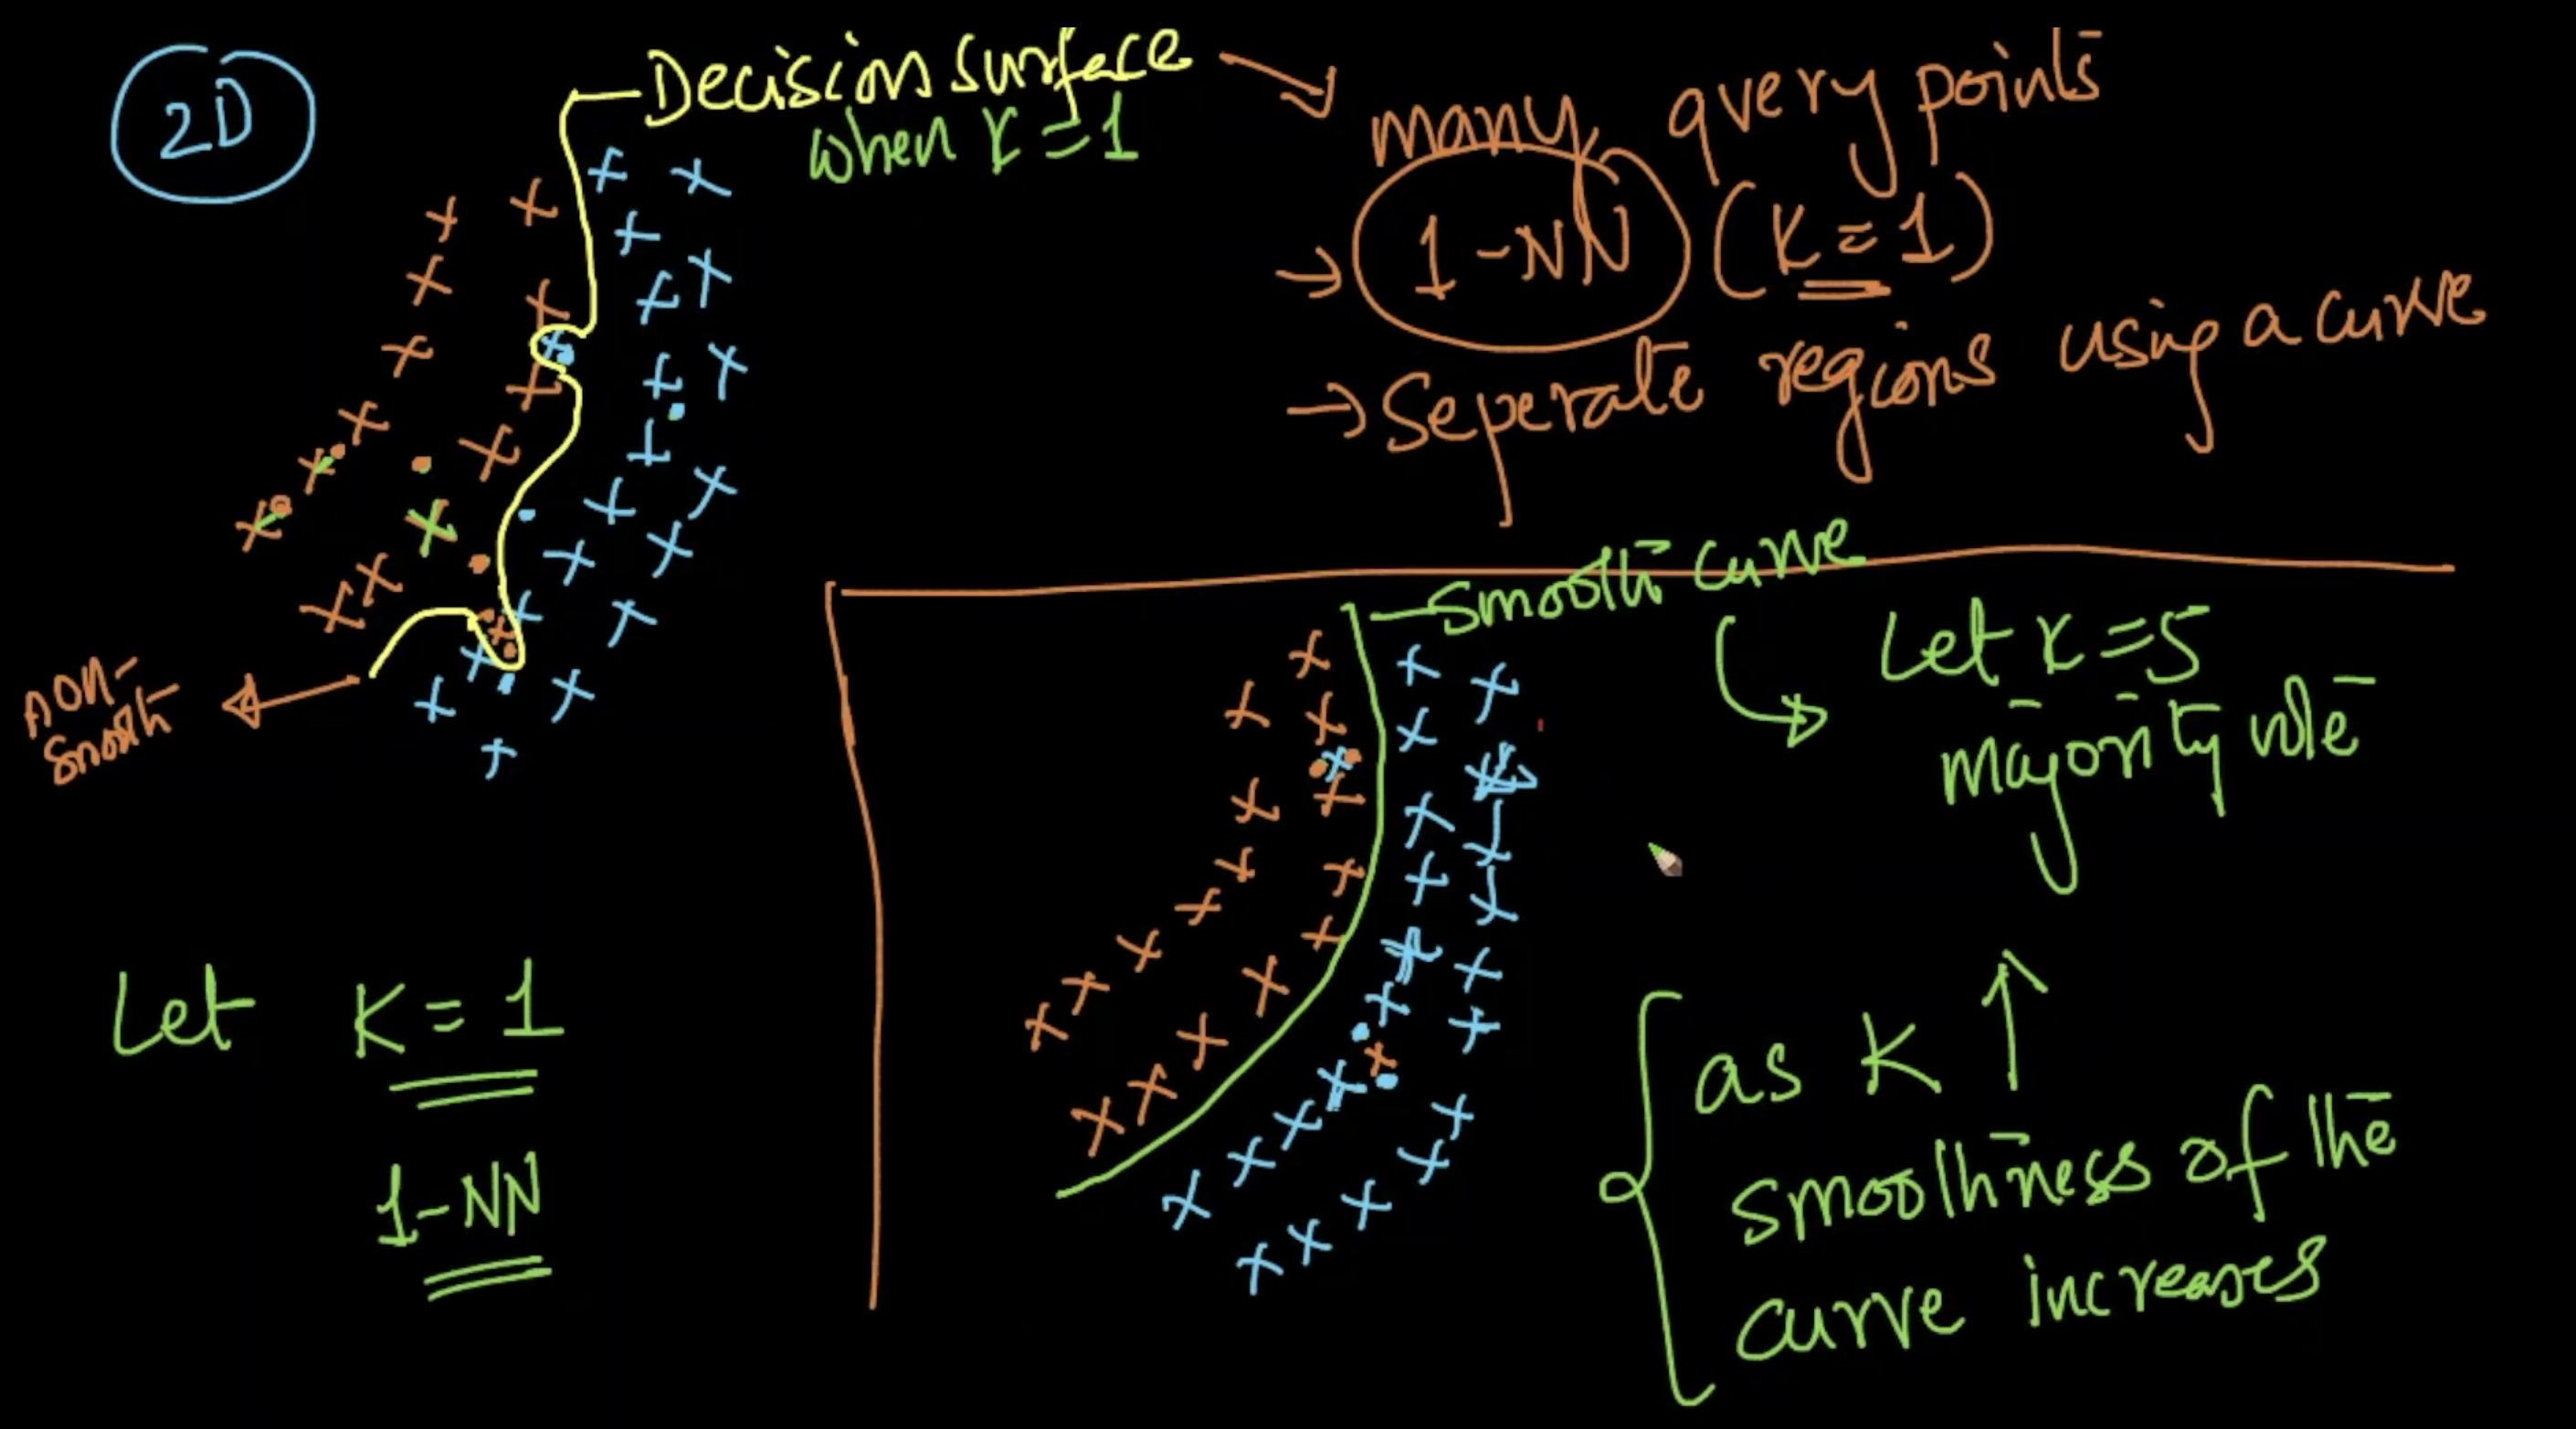 2D
Decision surface
when K = 1
many query points
→ 1-NN (K = 1)
→ Seperate regions using a curve
non-
smooth
Let K = 1
1-NN
smooth curve
Let K = 5
majority vote
as K ↑
smoothness of the
curve increases